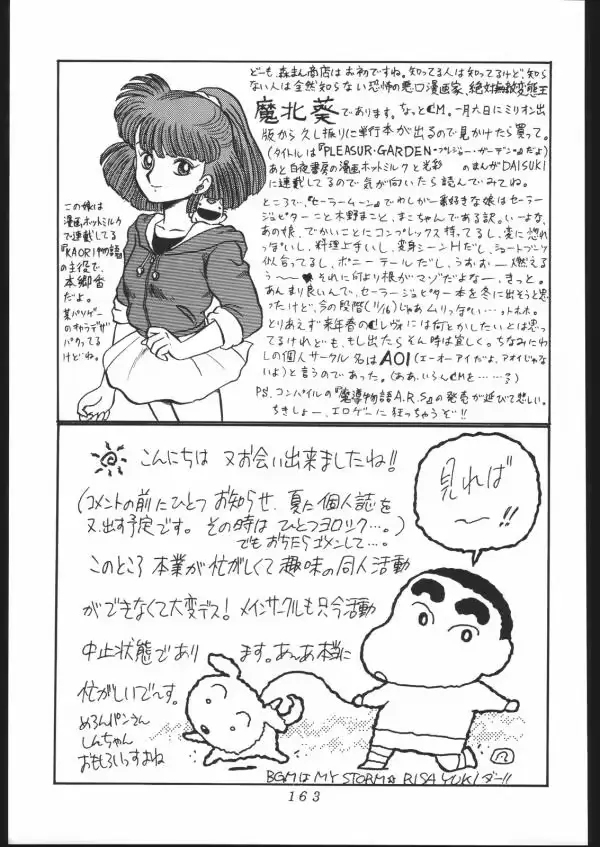 どーも、森まん商店はお初ですね。知ってる人は知ってるけど、知ら
ない人は全然知らない恐怖の悪口漫画家、絶対無敵変態王
魔北葵であります。なっとCM。一月六日にミリオン出
版から久し振りに単行本が出るので見かけたら買って。
(タイトルは『PLEASUR・GARDEN-プレジャー・ガーデン-』だよ)
あと白夜書房の漫画ホットミルクと光彩 のまんがDAISUKI
に連載してるので気が向いたら読んでみてね。
ところで、『セーラームーン』でわしが一番好きな娘はセーラー
ジュピターこと木野まこと、まこちゃんである訳。いーよな、
あの娘、でかいことにコンプレックス持ってるし、変に惚れ
っぽいし、料理上手いし、変身シーンHだし、ショートブーツ
似合ってるし、ポニーテールだし、うおぉー燃えるぅ
う〜〜♥それに何より根がマゾだよなー、きっと。
あんまり良いんで、セーラージュピター本を冬に出そうと思
ったけど、今の段階(11/16)じゃあムリっぽい…ットホホ。
とりあえず来年春のCレヴォには何とかしたいとは思っ
てるけれども、もし出たらそん時は宜しく。ちなみにわ
しの個人サークル名はAOI(エーオーアイだよ、アオイじゃな
いよ)と言うのであった。(ああ、いろんCMを……?)
PS、コンパイルの『魔導物語A.R.S』の発売が延びて悲しい。
ちきしょー、エロゲーに狂っちゃうぞ!!
この娘は
漫画ホットミルク
で連載してる
『KAORI物語』
の主役で、
本郷香
だよ。
某バリッデーの
キャラデザ
パクってる
けどね。
こんにちは 又お会い出来ましたね!!
(コメントの前にひとつ お知らせ、夏に個人誌を
又出す予定です。その時は ひとつヨロツク…。)
でもおちたらゴメンして…。
このところ 本業が忙がしくて 趣味の同人活動
ができなくて大変デス! メインサークルも只今活動
中止状態であり ます。あんあ本当に
忙がしいで〜す。
めろんパンさん
しんちゃん
おもろいっすよね
見れば
〜!!
BGMは MY STORM☆ RISA YUKI ダー!!
163